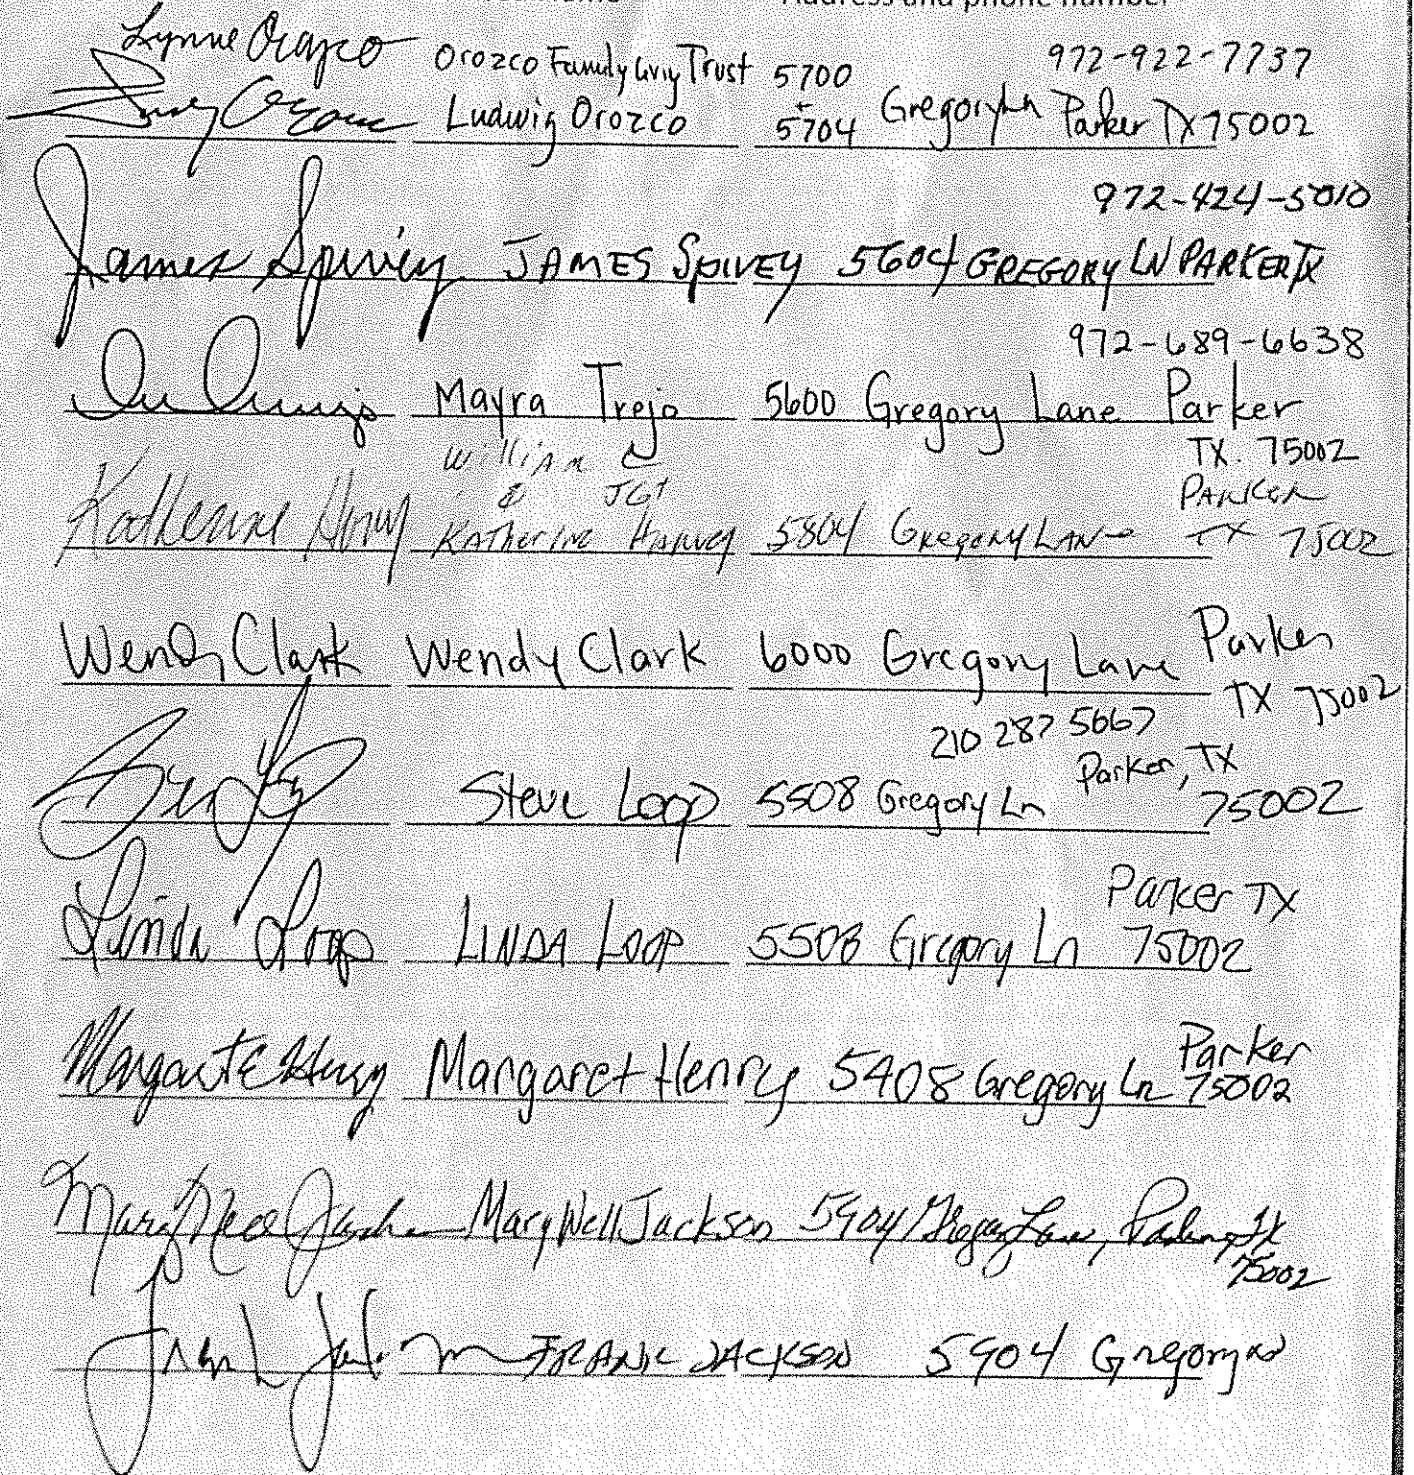 Address and phone number
Lynne Orozco Orozco Family Lving Trust 5700 972-922-7737
Ludwig Orozco + 5704 Gregory Ln Parker TX 75002
972-424-5010
James Spivey JAMES SPIVEY 5604 GREGORY LN PARKER TX
972-689-6638
Mayra Trejo 5600 Gregory Lane Parker
William TX. 75002
& JGT PARKER
Katherine Harvey Katherine Harvey 5804 Gregory Lane TX 75002
Wendy Clark Wendy Clark 6000 Gregory Lane Parker
TX 75002
210 287 5667
Steve Loop 5508 Gregory Ln Parker, TX
75002
Parker TX
Linda Loop LINDA LOOP 5508 Gregory Ln 75002
Parker
Margaret Henry 5408 Gregory Ln 75002
Mary Nell Jackson 5904 Gregory Lane, Parker, TX
75002
FRANK JACKSON 5904 Gregory